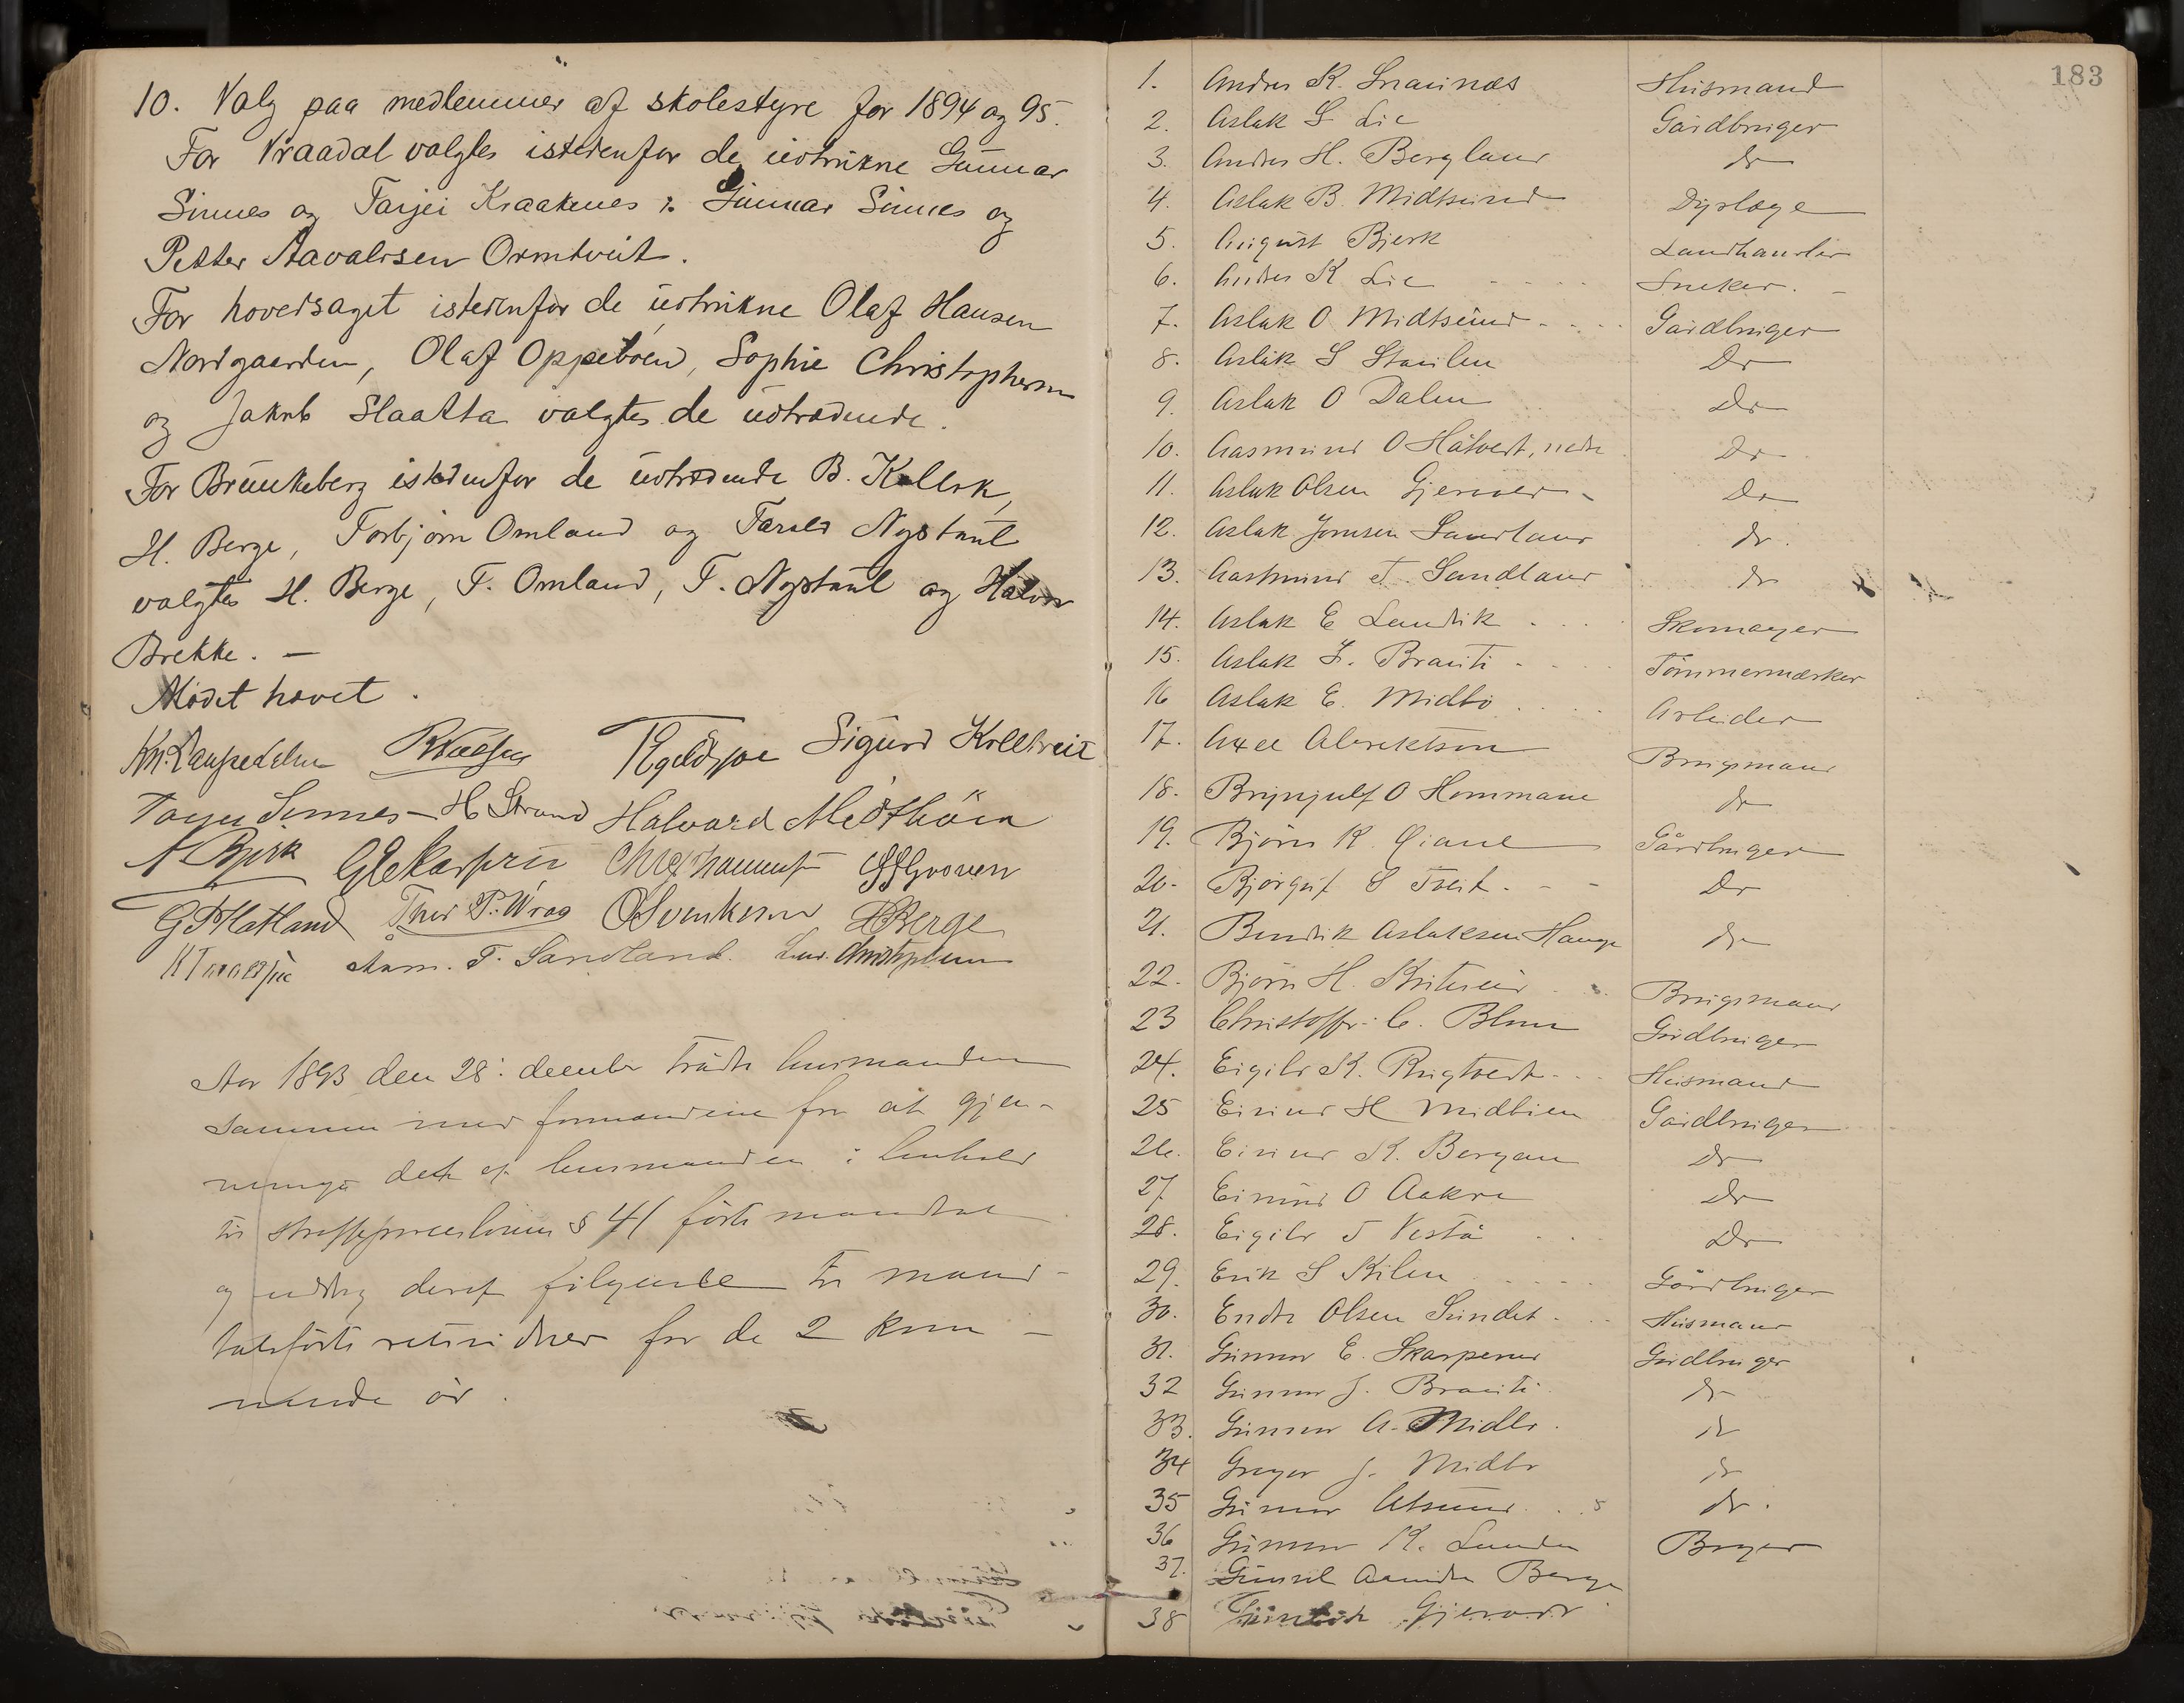 10. Valg paa medlemmer af skolestyre for 1894 og 95.
For Vraadal valgtes istedenfor de udtrukne Gunnar
Sinnes og Tarjei Kraakenes : Gunnar Sinnes og
Petter Aavaldsen Ormtveit.
For hovedsognet istedenfor de udtrukne Olaf Hansen
Nordgaarden, Olaf Oppeboen, Sophie Christophersen
og Jakob Slaatta valgtes de udtrædende.
For Brunkeberg istedenfor de udtrædende B.
H. Berge, Torbjørn Omland og Tarald Nystaul
valgtes H. Berge, T. Omland, T. Nystaul og Halvor
Brekke. —
Mødet hævet.
Sigurd Kolltveit
Sinnes — H Strand Halvard Midtbøen
A Bjerk
G Hatland Thor P. Wraa O Svenkesen HBerge
Aasm. T. Sandland. Christophersen
Aar 1893 den 28: december traadte lensmanden
sammen med formændene for at gjen-
nemgå det af lensmanden i henhold
til straffeproceslovens § 41 førte mandtal
og udtog deraf følgende til mand-
talsførte retsvidner for de 2 kom-
mende år.
183
1. Andres K. Husmand
2. Aslak S Lie Gårdbruger
3. Andres H. Bergland dr
4. Aslak B. Midtsund Dyrlæge
5. August Bjerk Landhandler
6. Andres K Lie Sneker.
7. Aslak O. Midtsund Gårdbruger
8. Aslak S Staulen Dr
9. Aslak O Dalen Dr
10. Aasmund O Håtveit, nedre Dr
11. Aslak Olsen Gjervold Dr
12. Aslak Jonsen Sandland dr.
13. Aasmund T. Sandland dr
14. Aslak E Lendik Skomager
15. Aslak Brauti Tømmermærker
16 Aslak E. Midtbø Arbeider
17. Axel Albrektson Brugsmand
18. Brynjulf O Hommane dr
19. Bjørn K. Gårdbruger
20. Bjørgulf S Tveit Dr
21. Bendik Aslaksen Hauge dr
22. Bjørn H. Brugsmand
23 Christoffer C. Blom Gårdbruger
24. Eigild K. Rugtveit Husmand
25 Eivind H Midtbøen Gårdbruger
26. Eivind K. Bergan Dr
27 Eivind O Aakre Dr
28. Eigild T Vestå Dr
29. Erik S Kilen Gårdbruger
30. Endre Olsen Sundet Husmand
31. Gunnar E. Skarpenes Gårdbruger
32 Gunnar J. Brauti dr
33. Gunnar A. Midtbø dr
34 Greger J. Midtbø dr
35 Gunnar dr.
36 Gunnar K. Lunden Bryger
37. Aanundsen Berge
38 Gjervold